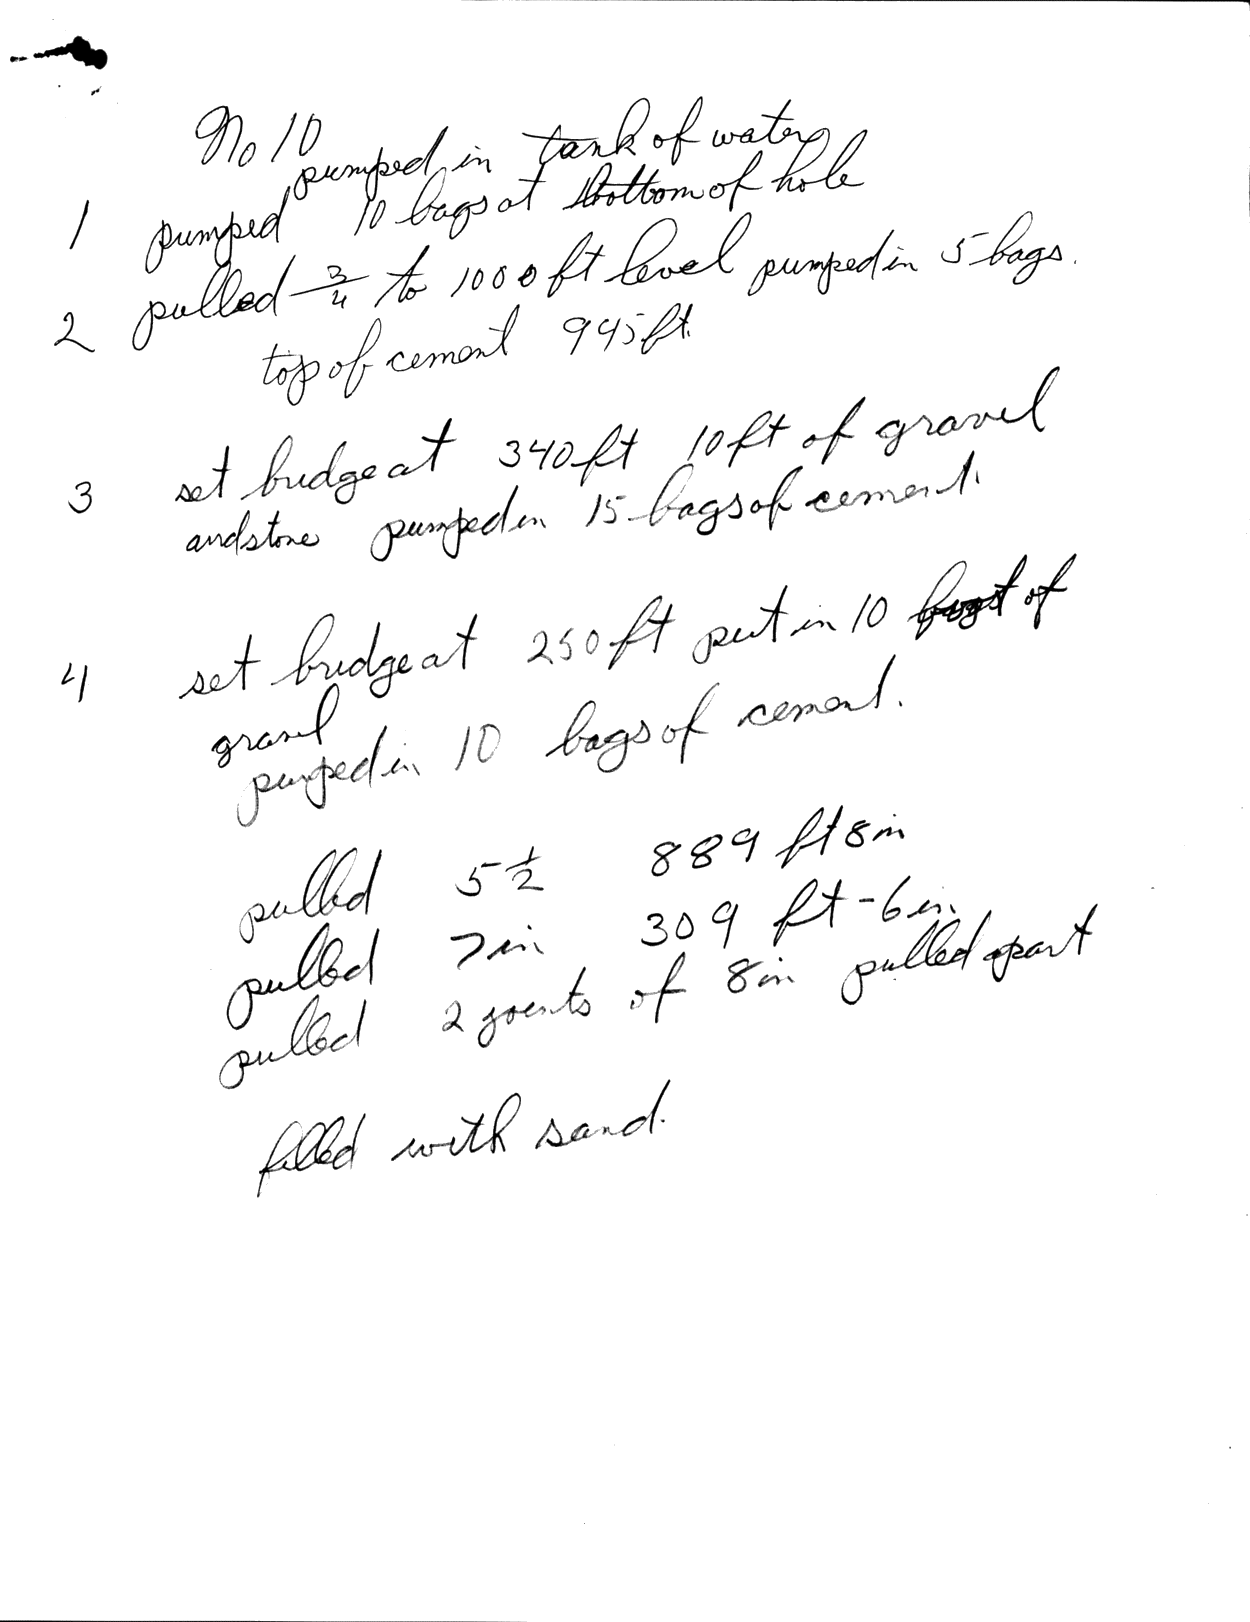 No 10
pumped in tank of water
1 pumped 10 bags at bottom of hole
2 pulled 3/4 to 1000 ft level pumped in 5 bags.
top of cement 945 ft.
3 set bridge at 340 ft 10 ft of gravel
and stone pumped in 15 bags of cement.
4 set bridge at 250 ft put in 10 of
gravel
pumped in 10 bags of cement.
pulled 5 1/2 889 ft 8 in
pulled 7 in 309 ft - 6 in.
pulled 2 joints of 8 in pulled apart
filled with sand.